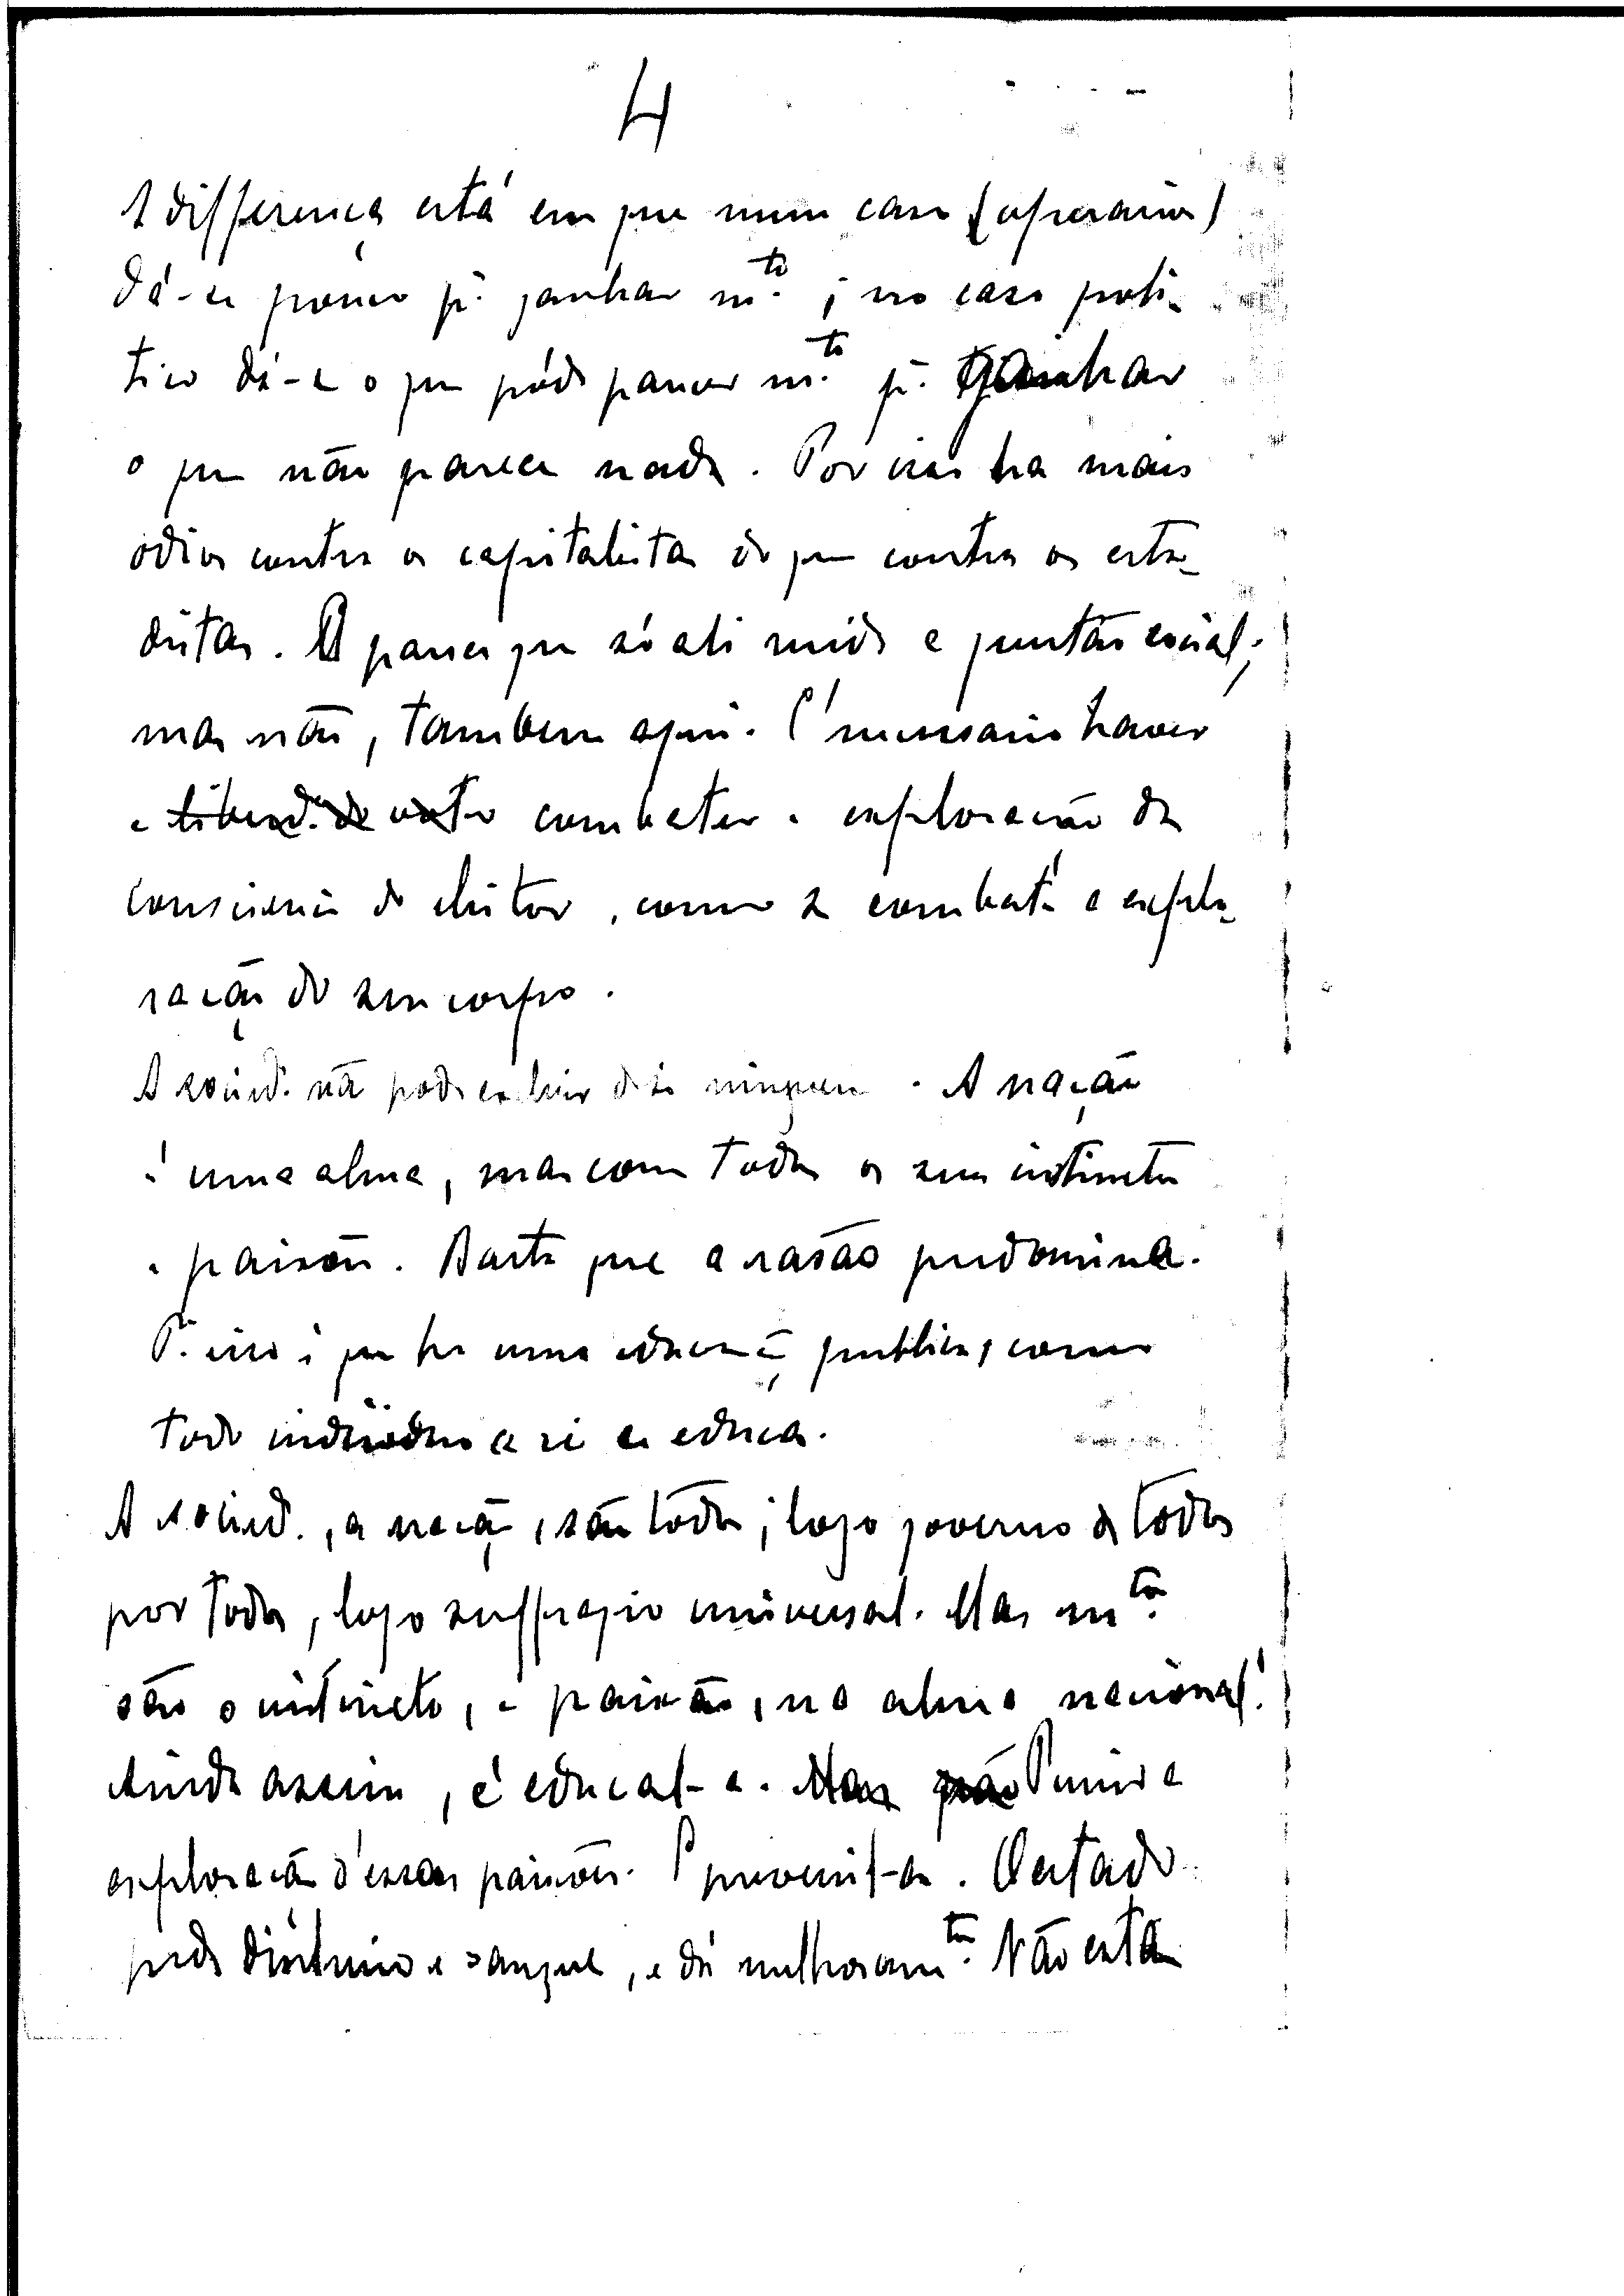 4
A differença está em que num caso (operarios)
dá-se pouco p.ª ganhar m.to; no caso poli-
tico dá-se o que póde parecer m.to p.ª ganhar
o que não parece nada. Por isso ha mais
odios contra os capitalistas do que contra os esta-
distas. E parece que só ali reside a questão social;
mas não, tambem aqui. É necessario haver
a liberd.e de voto combater a exploração da
consciencia do eleitor, como se combate a explo-
ração do seu corpo.
A socied.e não pode excluir de si ninguem. A nação
é uma alma, mas com todos os seus instinctos
e paixões. Basta que a rasão predomine.
P.ª isso é que ha uma educação publica, como
todo individuo a si se educa.
A socied.e, a nação, são todos; logo governo de todos
por todos, logo suffragio universal. Mas m.tos
são o instincto, a paixão, na alma nacional!
Ainda assim, é educal-a. Mas não Punir a
exploração d'essas paixões. E prevenil-as. O estado
pede dinheiro e sangue, e dá melhoram.tos Não está